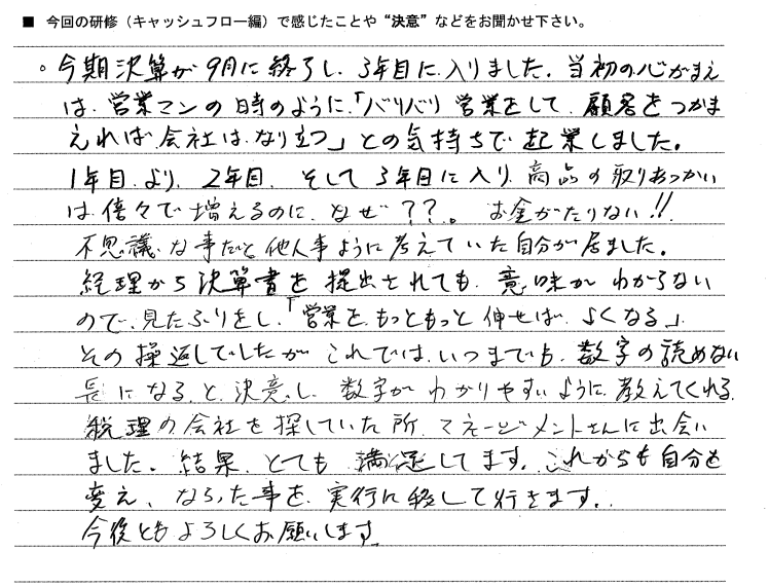 ■ 今回の研修（キャッシュフロー編）で感じたことや“決意”などをお聞かせ下さい。
。今期決算が9月に終了し、3年目に入りました。当初の心がまえ
は、営業マンの時のように、「バリバリ営業をして、顧客をつかま
えれば、会社は、なり立つ」との気持ちで起業しました。
1年目、より、2年目、そして3年目に入り、商品の取りあつかい
は倍々で増えるのに、なぜ??。お金がたりない!!
不思議な事だと他人事ように考えていた自分が居ました。
経理から決算書を提出されても、意味がわからない
ので、見たふりをし、「営業を、もっともっと伸せば、よくなる」
その操返しでしたが、これでは、いつまでも、数字の読めない
長になると、決意し、数字が、わかりやすいように、教えてくれる
税理の会社を探していた所、マネージメントさんに出会い
ました。結果、とても満足してます。これからも自分も
変え、ならった事を、実行に移して行きます。
今後ともよろしくお願いします。